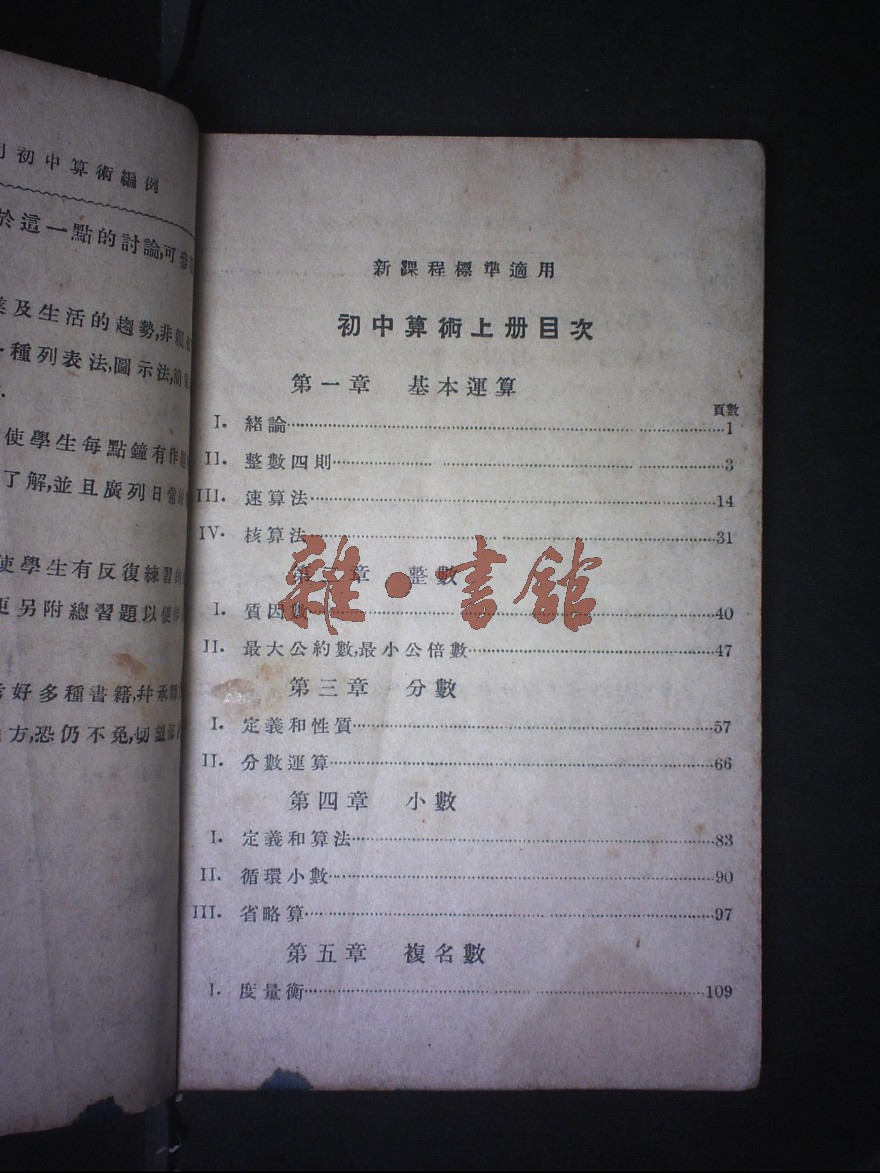 初中算術編例
於這一點的討論,可參
及生活的趨勢,非賴
種列表法,圖示法,簡
使學生每點鐘有作
了解,並且廣列日常
使學生有反復練習
更另附總習題以便
好多種書籍,幷承
方,恐仍不免,切望
新課程標準適用
初中算術上册目次
第一章 基本運算
頁數
I. 緒論 1
II. 整數四則 3
III. 速算法 14
IV. 核算法 31
第二章 整數
雜·書館
I. 質因數 40
II. 最大公約數,最小公倍數 47
第三章 分數
I. 定義和性質 57
II. 分數運算 66
第四章 小數
I. 定義和算法 83
II. 循環小數 90
III. 省略算 97
第五章 複名數
I. 度量衡 109